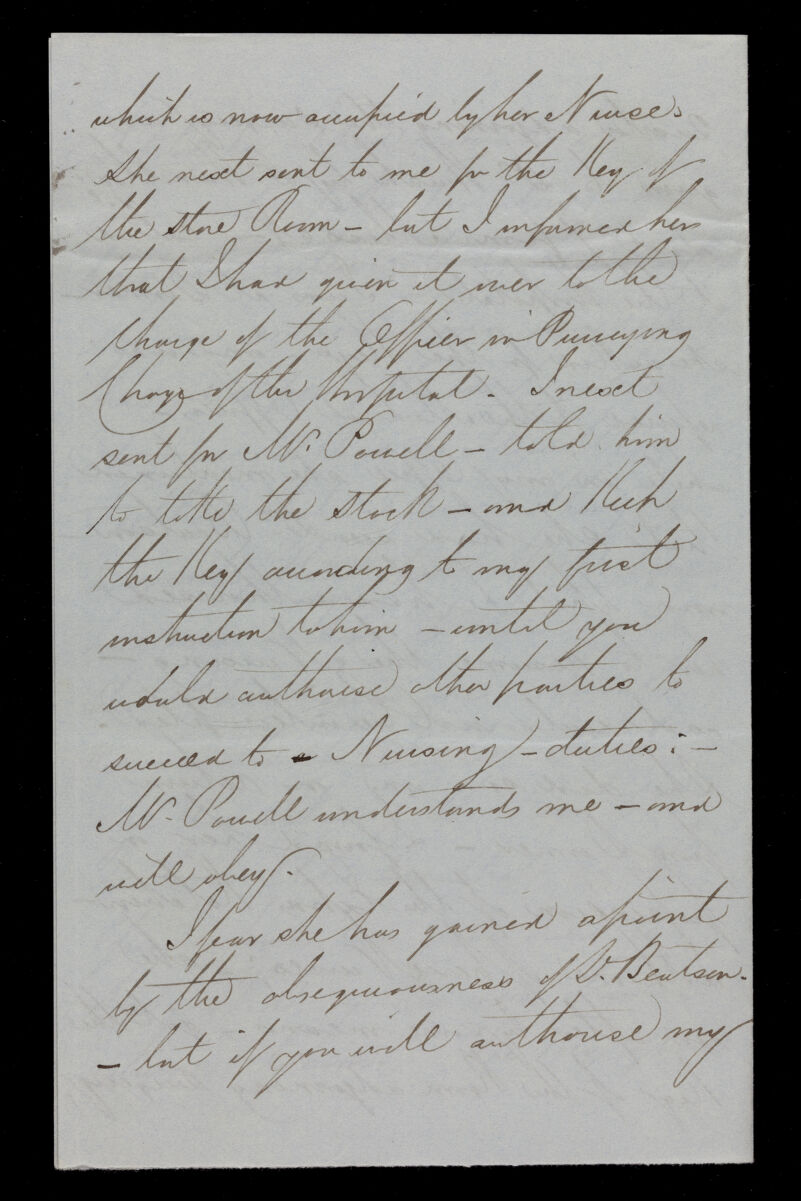 which is now occupied by her Nurses
She next sent to me for the Key of
the store Room – but I informed her
that I had given it over to the
charge of the Officer in Purveying
Charge of the Hospital – I next
sent for Mr. Powell – told him
to take the stock – and Keep
the Key according to my first
instruction to him – until you
would authorise other parties to
succeed to Nursing – duties: –
Mr. Powell understands me – and
will obey.
I fear she has gained a point
by the obsequiousness of Dr. Beatson.
– but if you will authorise my